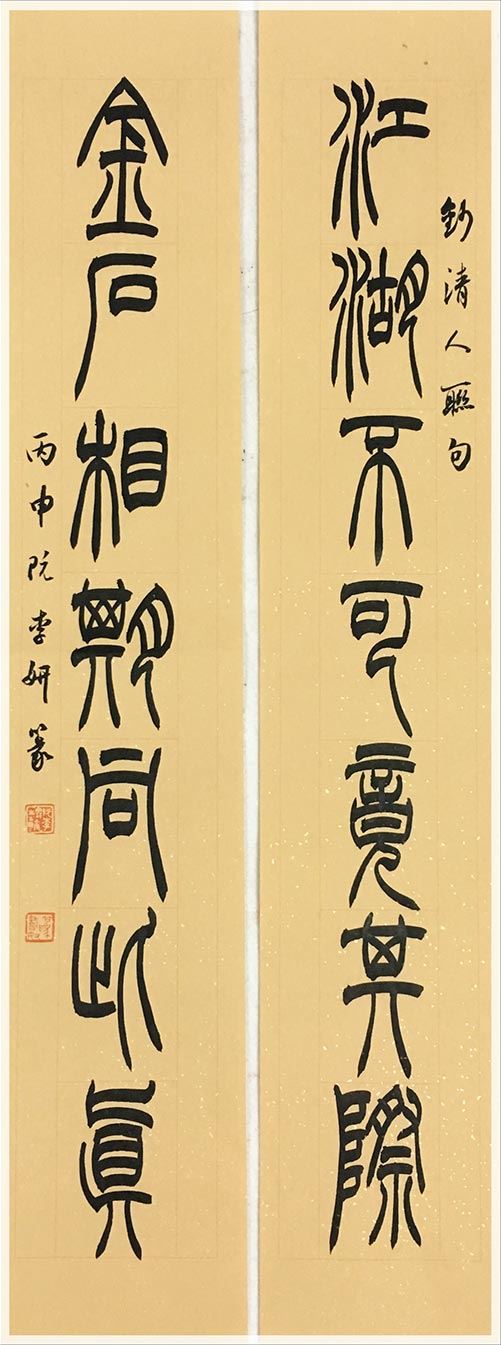 鈔清人聯句
江湖不可竟其際
金石相期同此真
丙申阮李妍篆